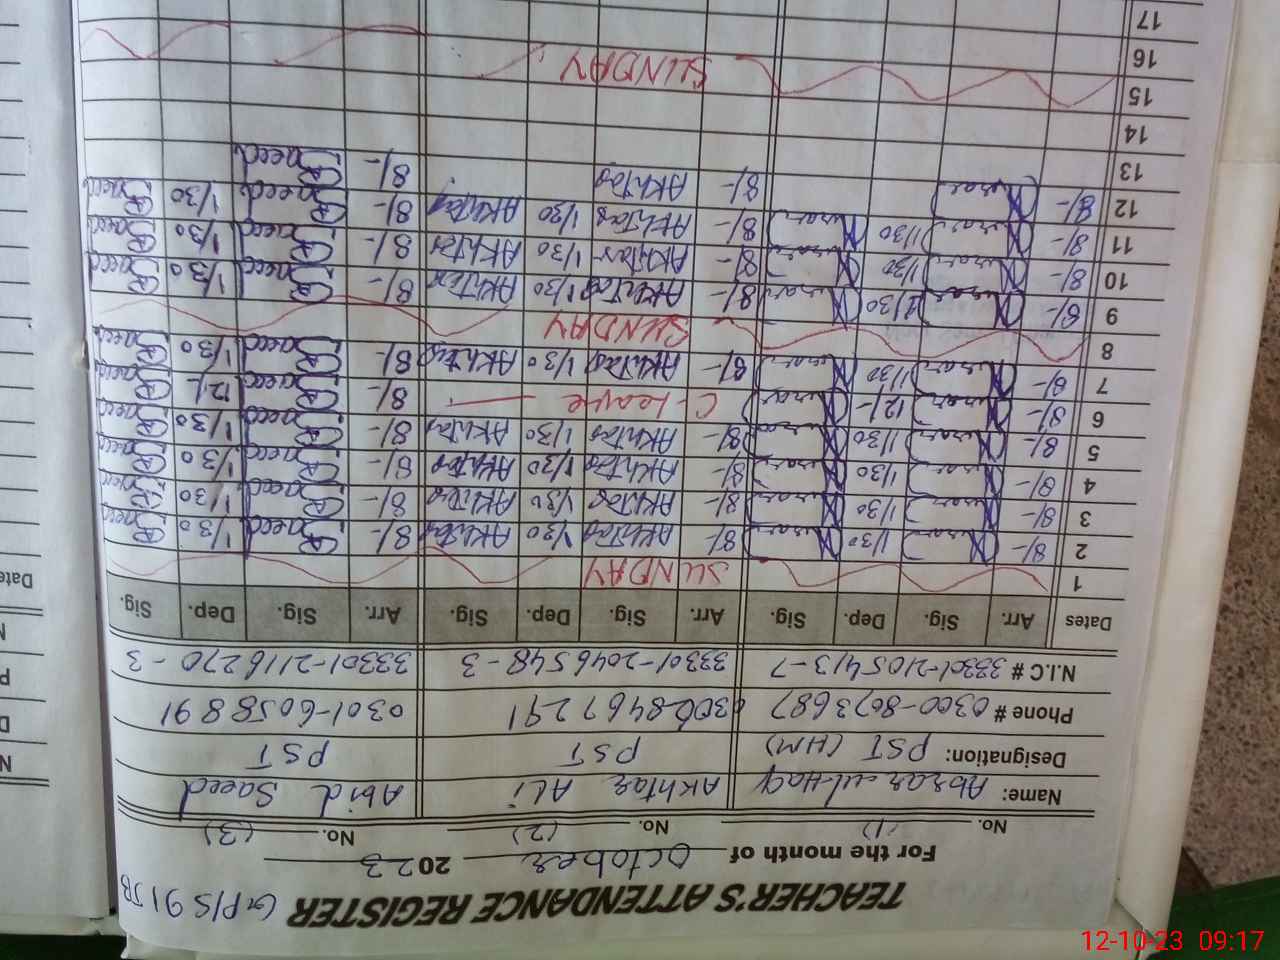 TEACHER'S ATTENDANCE REGISTER GPS 91 JB
For the month of October 2023
No. (1) No. (2) No. (3)
Name: Abrar ul Haq Akhtar Ali Abid Saeed
Designation: PST (HM) PST PST
Phone # 0300-8673687 0300 8467291 0301-6058891
N.I.C # 33301-2105413-7 33301-2046548-3 33301-2116270-3
Dates Arr. Sig. Dep. Sig. Arr. Sig. Dep. Sig. Arr. Sig. Dep. Sig.
1 SUNDAY
2 8/- 1/30 8/- Akhtar 1/30 Akhtar 8/- Saeed 1/30 Saeed
3 8/- 1/30 8/- Akhtar 1/30 Akhtar 8/- Saeed 1/30 Saeed
4 8/- 1/30 8/- Akhtar 1/30 Akhtar 8/- Saeed 1/30 Saeed
5 8/- 1/30 8/- Akhtar 1/30 Akhtar 8/- Saeed 1/30 Saeed
6 8/- 12/- C-Leave 8/- Saeed 12/- Saeed
7 8/- 1/30 8/- Akhtar 1/30 Akhtar 8/- Saeed 1/30 Saeed
8 SUNDAY
9 8/- 1/30 8/- Akhtar 1/30 Akhtar 8/- Saeed 1/30 Saeed
10 8/- 1/30 8/- Akhtar 1/30 Akhtar 8/- Saeed 1/30 Saeed
11 8/- 1/30 8/- Akhtar 1/30 Akhtar 8/- Saeed 1/30 Saeed
12 8/- 8/- Akhtar 8/- Saeed
13
14
15 SUNDAY
16
17
Date
12-10-23 09:17